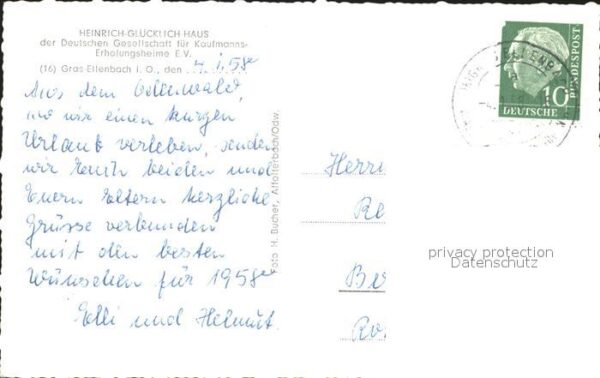 HEINRICH-GLÜCKLICH HAUS
der Deutschen Gesellschaft für Kaufmanns-
Erholungsheime E.V.
(16) Gras-Ellenbach i. O., den 4.1.58
Aus dem Odenwald,
wo wir einen kurzen
Urlaub verleben, senden
wir Euch beiden und
Euern Eltern herzliche
Grüsse verbunden
mit den besten
Wünschen für 1958
Elli und Helmut.
Foto H. Bucher, Affolterbach/Odw.
DEUTSCHE
BUNDESPOST
10
Herrn
Re
Be
Ro
privacy protection
Datenschutz